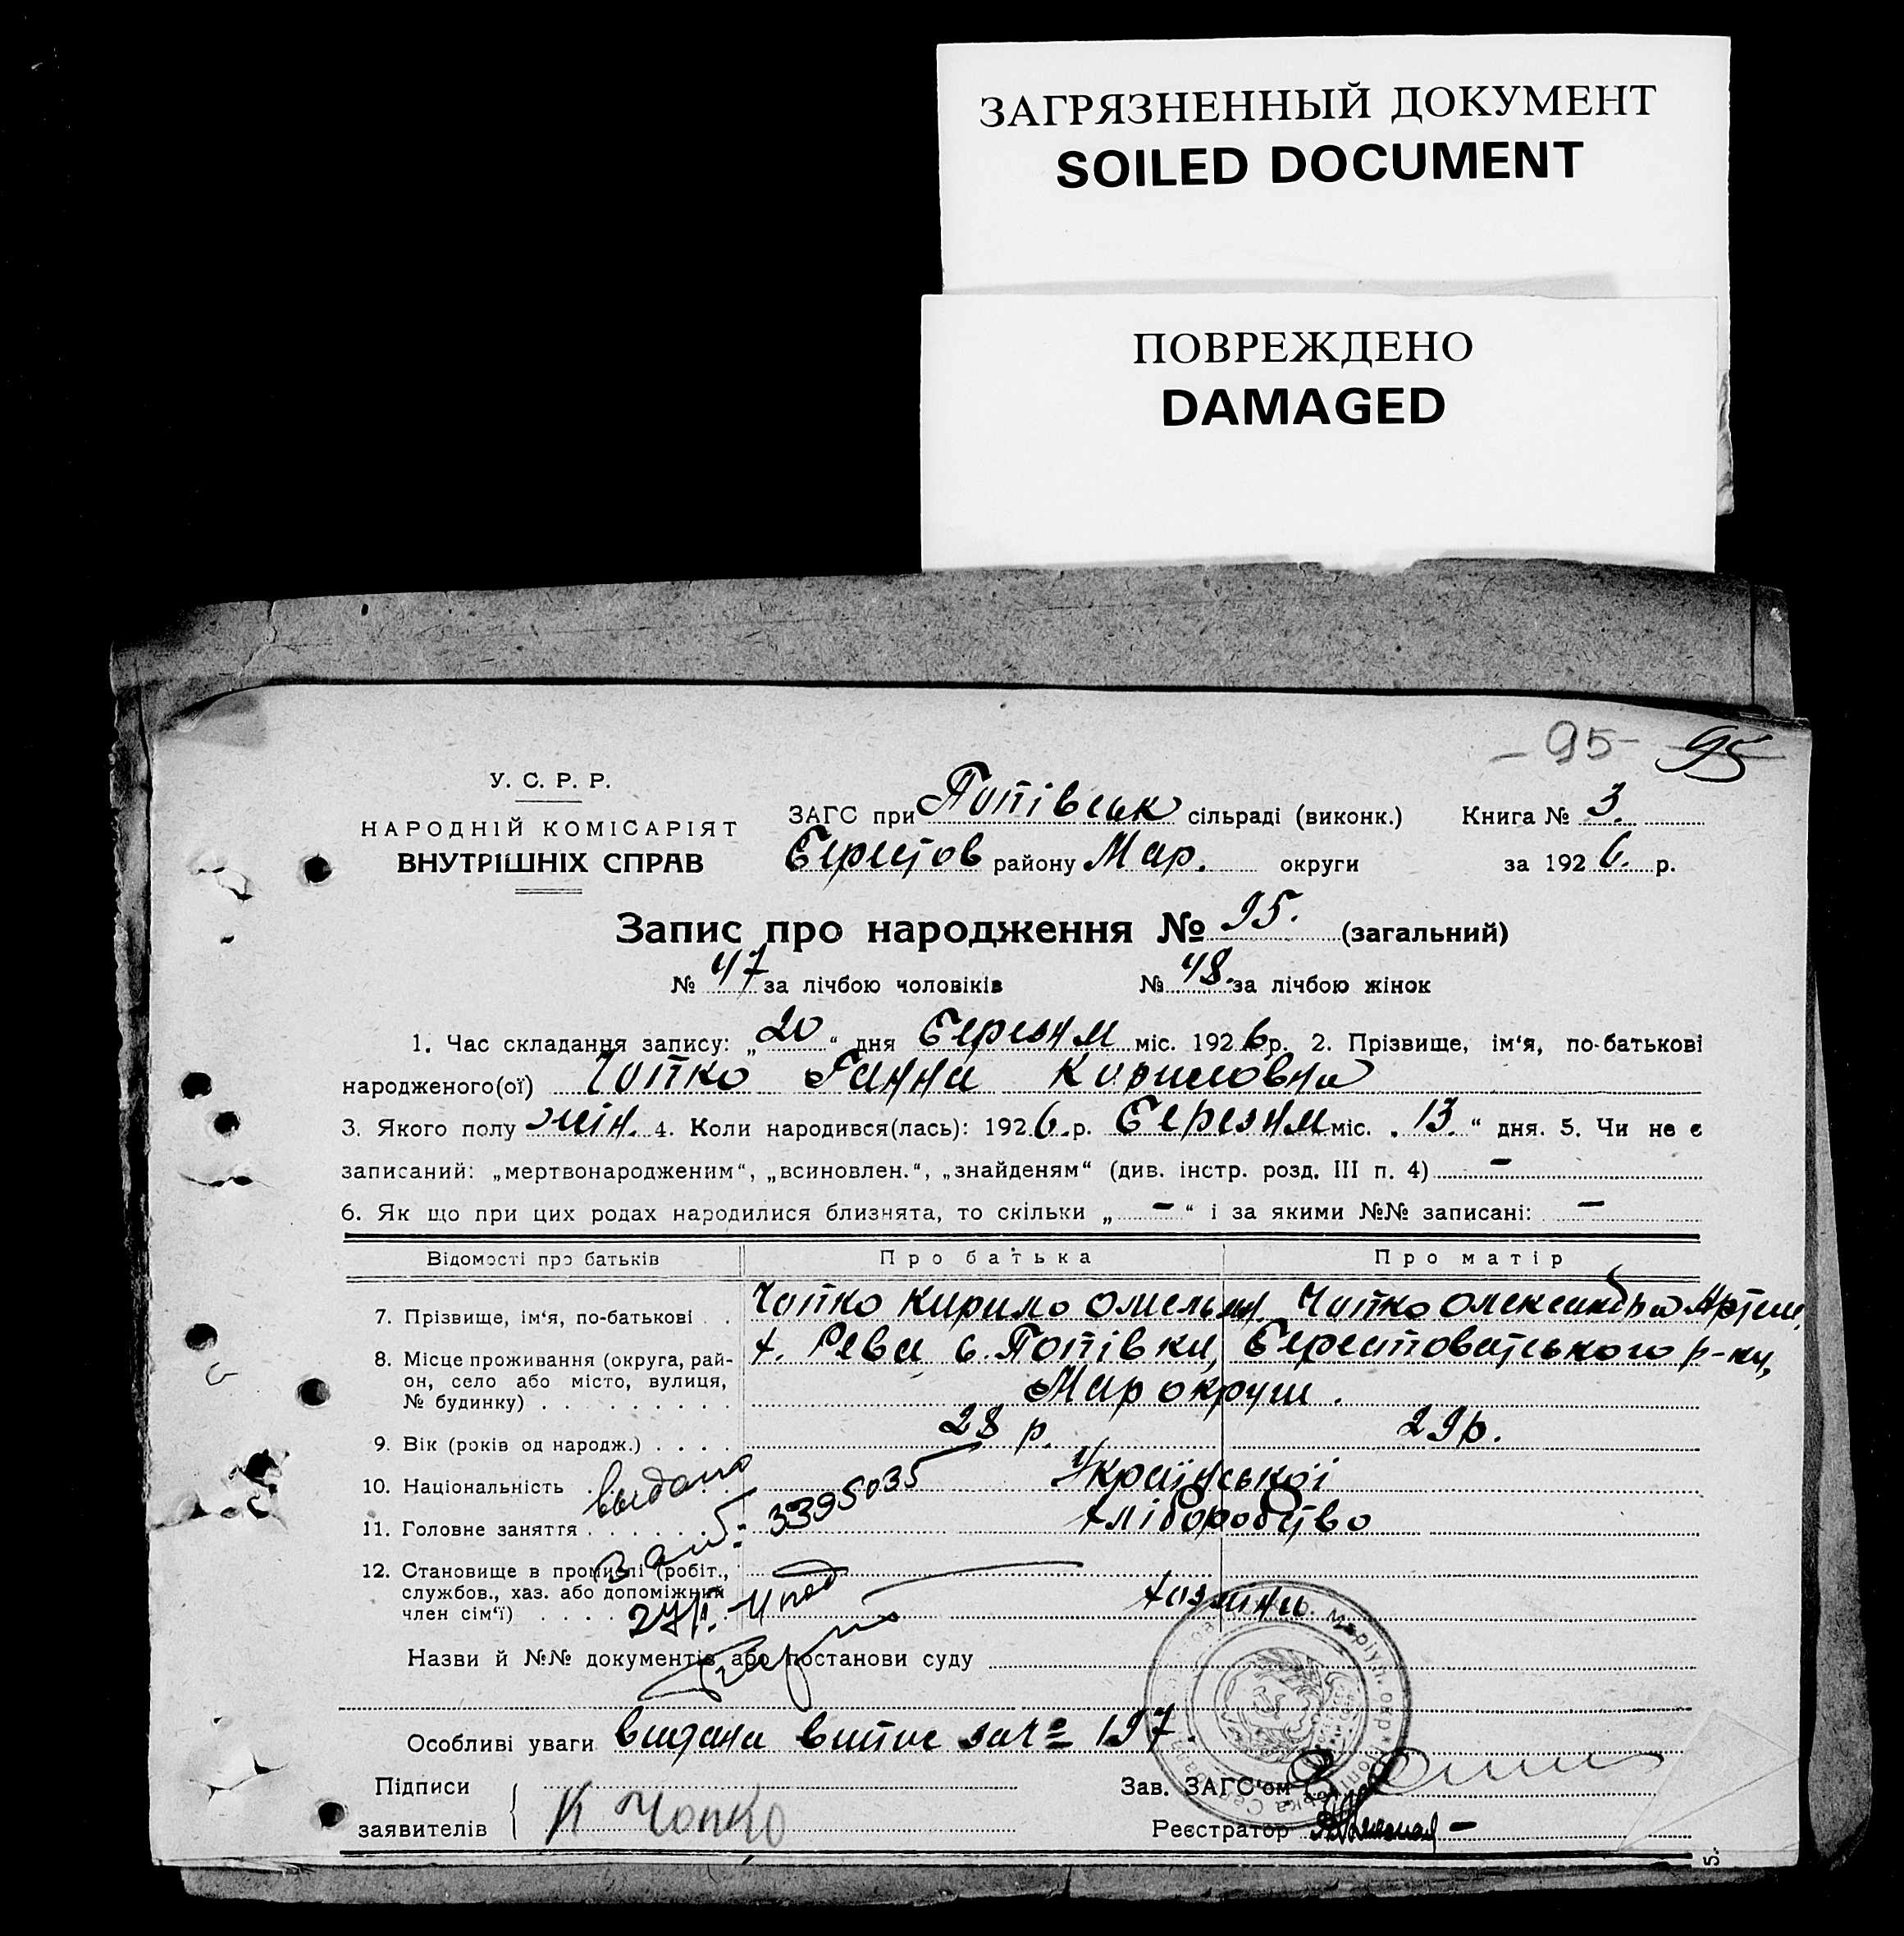 ЗАГРЯЗНЕННЫЙ ДОКУМЕНТ
SOILED DOCUMENT
ПОВРЕЖДЕНО
DAMAGED
-95- 95
У. С. Р. Р.
НАРОДНІЙ КОМІСАРІЯТ
ВНУТРІШНІХ СПРАВ
ЗАГС при Попівськ сільраді (виконк.) Книга № 3.
Берестов району Мар. округи за 1926. р.
Запис про народження № 95. (загальний)
№ 47 за лічбою чоловіків № 48. за лічбою жінок
1. Час складання запису: „20“ дня Березня міс. 1926 р. 2. Прізвище, ім‘я, по-батькові
народженого(ої) Чопко Ганна Кириловна
3. Якого полу жін. 4. Коли народився(лась): 1926. р. Березня міс. „13.“ дня. 5. Чи не є
записаний: „мертвонародженим“, „всиновлен.“, „знайденям“ (див. інстр. розд. III п. 4) -
6. Як що при цих родах народилися близнята, то скільки „-“ і за якими №№ записані: -
Відомості про батьків Про батька Про матір
7. Прізвище, ім‘я, по-батькові . . Чопко Кирило Омельян. Чопко Олександра Артем.
8. Місце проживання (округа, рай-
он, село або місто, вулиця,
№ будинку) . . . . . . . . .
х. Рева с. Попівки, Берестоватського р-ну,
Мар округи.
9. Вік (років од народж.) . . . . 28 р. 29 р.
10. Національність Української
выдано
11. Головне заняття . . . . . . . хліборобство
3395035
12. Становище в промислі (робіт.,
службов., хаз. або допоміжний
член сім‘ї) . . . .
хозяини
Назви й №№ документів або постанови суду
Особливі уваги видана витис за № 197.
Підписи
заявителів
К Чопко
Зав. ЗАГС‘ом
Реєстратор
5.